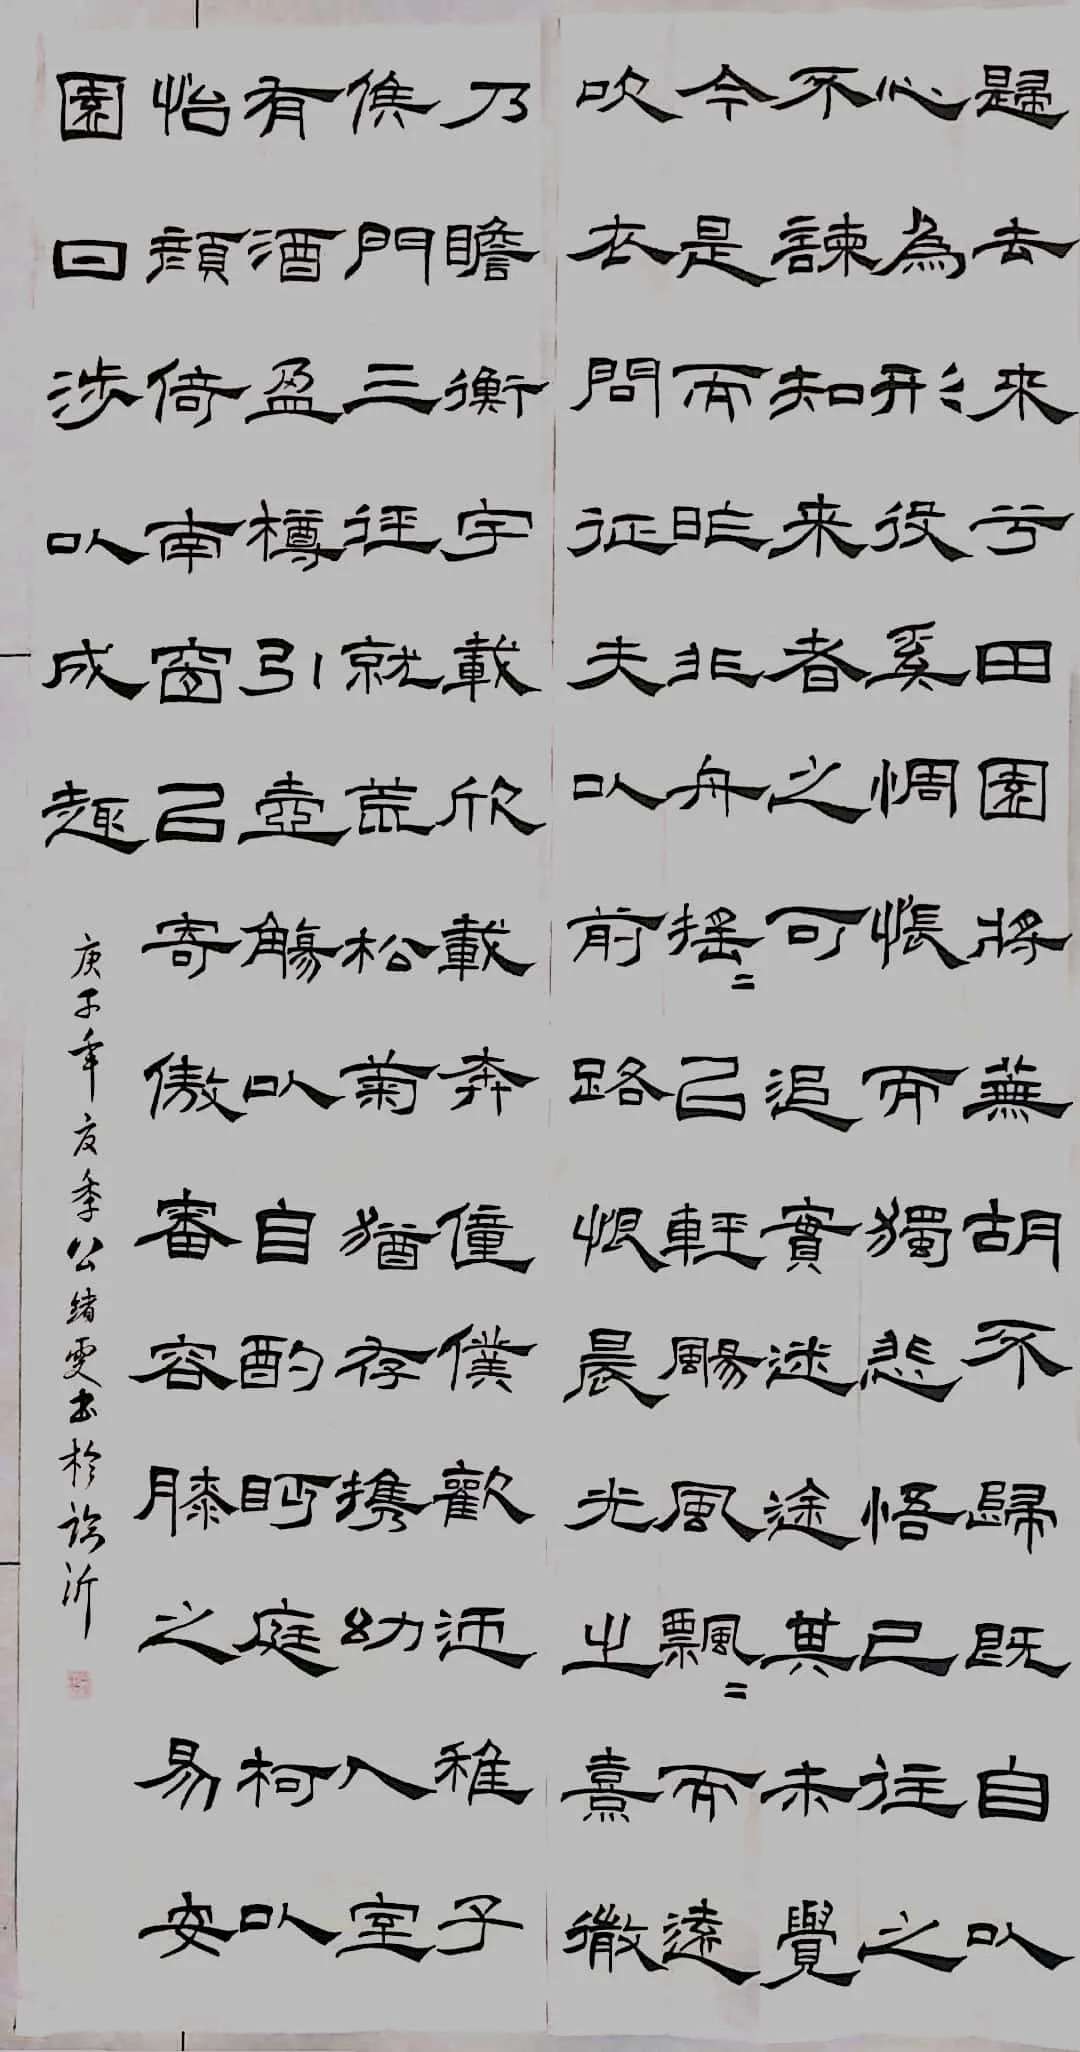 歸去來兮田園將蕪胡不歸既自以
心為形役奚惆悵而獨悲悟已往之
不諫知来者之可追實迷途其未覺
今是而昨非舟摇〻已輕颺風飄〻而遠
吹衣問征夫以前路恨晨光之熹微
乃瞻衡宇載欣載奔僮僕歡迎稚子
候門三徑就荒松菊猶存携幼入室
有酒盈樽引壺觴以自酌眄庭柯以
怡顏倚南窗已寄傲審容膝之易安
園日涉以成趣
庚子年夏季公緒雯书於临沂